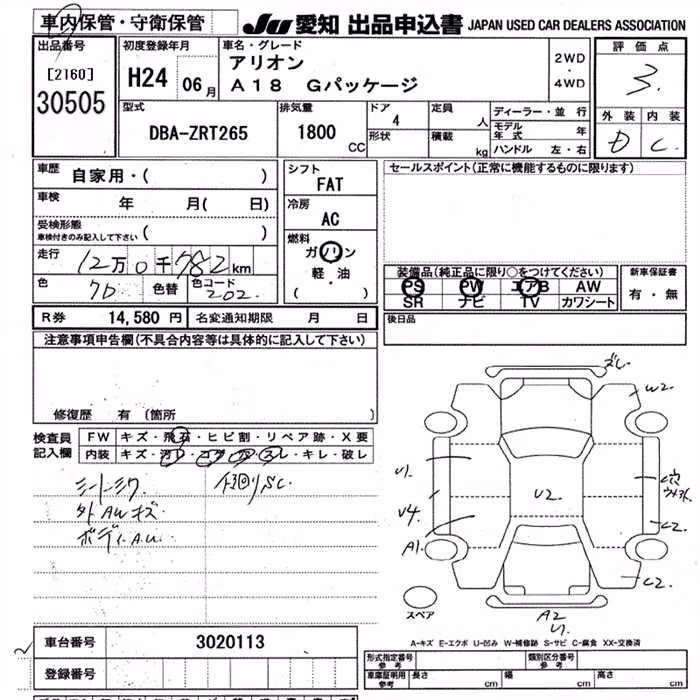 車内保管・守衛保管
JU 愛知 出品申込書 JAPAN USED CAR DEALERS ASSOCIATION
出品番号
[2160]
30505
初度登録年月
H24 06月
車名・グレード
アリオン
A18 Gパッケージ
2WD
・
4WD
評価点
3.
外装 内装
D C
型式
DBA-ZRT265
排気量
1800 CC
ドア
4
形状
定員
人
積載
kg
ディーラー・並行
モデル年式 年
ハンドル 左・右
車歴 自家用・( )
車検 年 月( 日)
受検形態
車検付きのみ記入して下さい ( )
走行 12万0千782km
色 7D 色替 色コード 202.
シフト
FAT
冷房
AC
燃料
ガソリン
軽・油
( )
セールスポイント(正常に機能するものに限ります)
装備品(純正品に限り○をつけてください)
PS PW エアB AW
SR ナビ TV カワシート
新車保証書
有・無
R券 14,580円 名変通知期限 月 日
後日品
注意事項申告欄(不具合内容等は具体的に記入して下さい)
修復歴 有 〔箇所 〕
検査員
記入欄
FW キズ・飛石・ヒビ割・リペア跡・X要
内装 キズ・汚レ・コゲ・穴・スレ・キレ・破レ
シートシワ
外AWキズ
ボディA.U.
下回りSC.
ズレ
W2
U1
U4
A1
U2.
C穴
C2
C2
A2
U1
スペア
A-キズ E-エクボ U-凹み W-補修跡 S-サビ C-腐食 XX-交換済
車台番号 3020113
登録番号
形式指定番号
参考
類別区分番号
参考
車庫証明用
参考
長さ cm 幅 cm 高さ cm